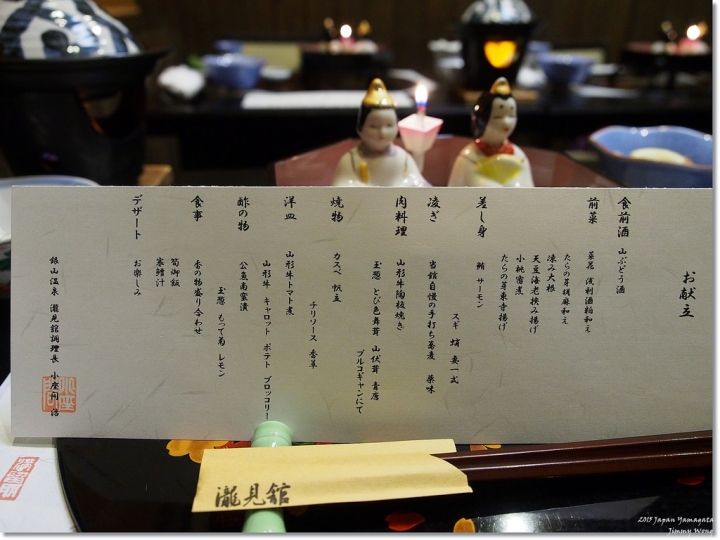 お献立
食前酒 山ぶどう酒
前菜 菜花 浅利酒粕和え
たらの芽胡麻和え
凍み大根
天豆海老挟み揚げ
小桃蜜煮
たらの芽東寺揚げ
差し身 鮪 サーモン
スギ 蛸 妻一式
凌ぎ 当館自慢の手打ち蕎麦 薬味
肉料理 山形牛陶板焼き
玉葱 とび色舞茸 山伏茸 青唐
プルコギジャンにて
焼物 カスベ 帆立
チリソース 香草
洋皿 山形牛トマト煮
山形牛 キャロット ポテト ブロッコリー
酢の物 公魚南蛮漬
玉葱 もって菊 レモン
食事 香の物盛り合わせ
筍御飯
寒鱈汁
デザート お楽しみ
銀山温泉 瀧見館調理長 小座間 浩
瀧見舘
2013 Japan Yamagata
Jimmy Wong